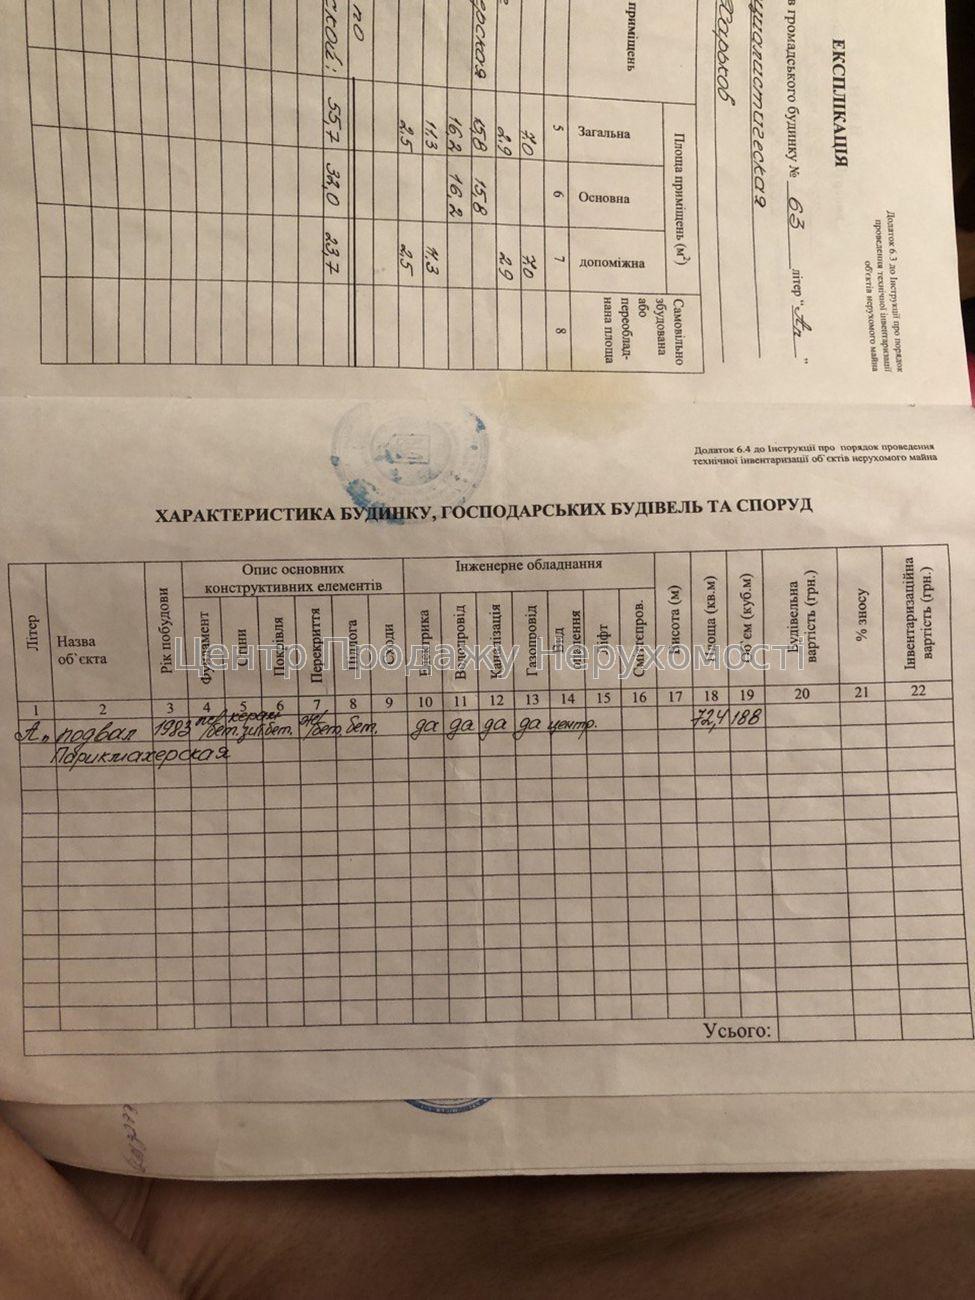 ЕКСПЛІКАЦІЯ
Додаток 6.3 до Інструкції про порядок
проведення технічної інвентаризації
об'єктів нерухомого майна
в громадського будинку № 63 літер "Ап"
Харьков
приміщень
Площа приміщень (м²)
Самовільно
збудована
або
переоблад-
нана площа
Загальна Основна допоміжна
5 6 7 8
7,0 7,0
2,9 2,9
15,8 15,8
16,2 16,2
11,3 11,3
2,5 2,5
по
ской: 55,7 32,0 23,7
Додаток 6.4 до Інструкції про порядок проведення
технічної інвентаризації об`єктів нерухомого майна
ХАРАКТЕРИСТИКА БУДИНКУ, ГОСПОДАРСЬКИХ БУДІВЕЛЬ ТА СПОРУД
Літер
Назва
об`єкта
Рік побудови
Опис основних
конструктивних елементів
Фундамент
Стіни
Покрівля
Перекриття
Підлога
Сходи
Інженерне обладнання
Електрика
Водопровід
Каналізація
Газопровід
Вид
Ліфт
Сміттєпров.
Висота (м)
Площа (кв.м)
Об`єм (куб.м)
Будівельна
вартість (грн.)
% зносу
Інвентаризаційна
вартість (грн.)
1 2 3 4 5 6 7 8 9 10 11 12 13 14 15 16 17 18 19 20 21 22
подвал 1983 бет. бет. бет. да да да да центр. 72,4 188
Парикмахерская
Усього:
Центр Продажу Нерухомості